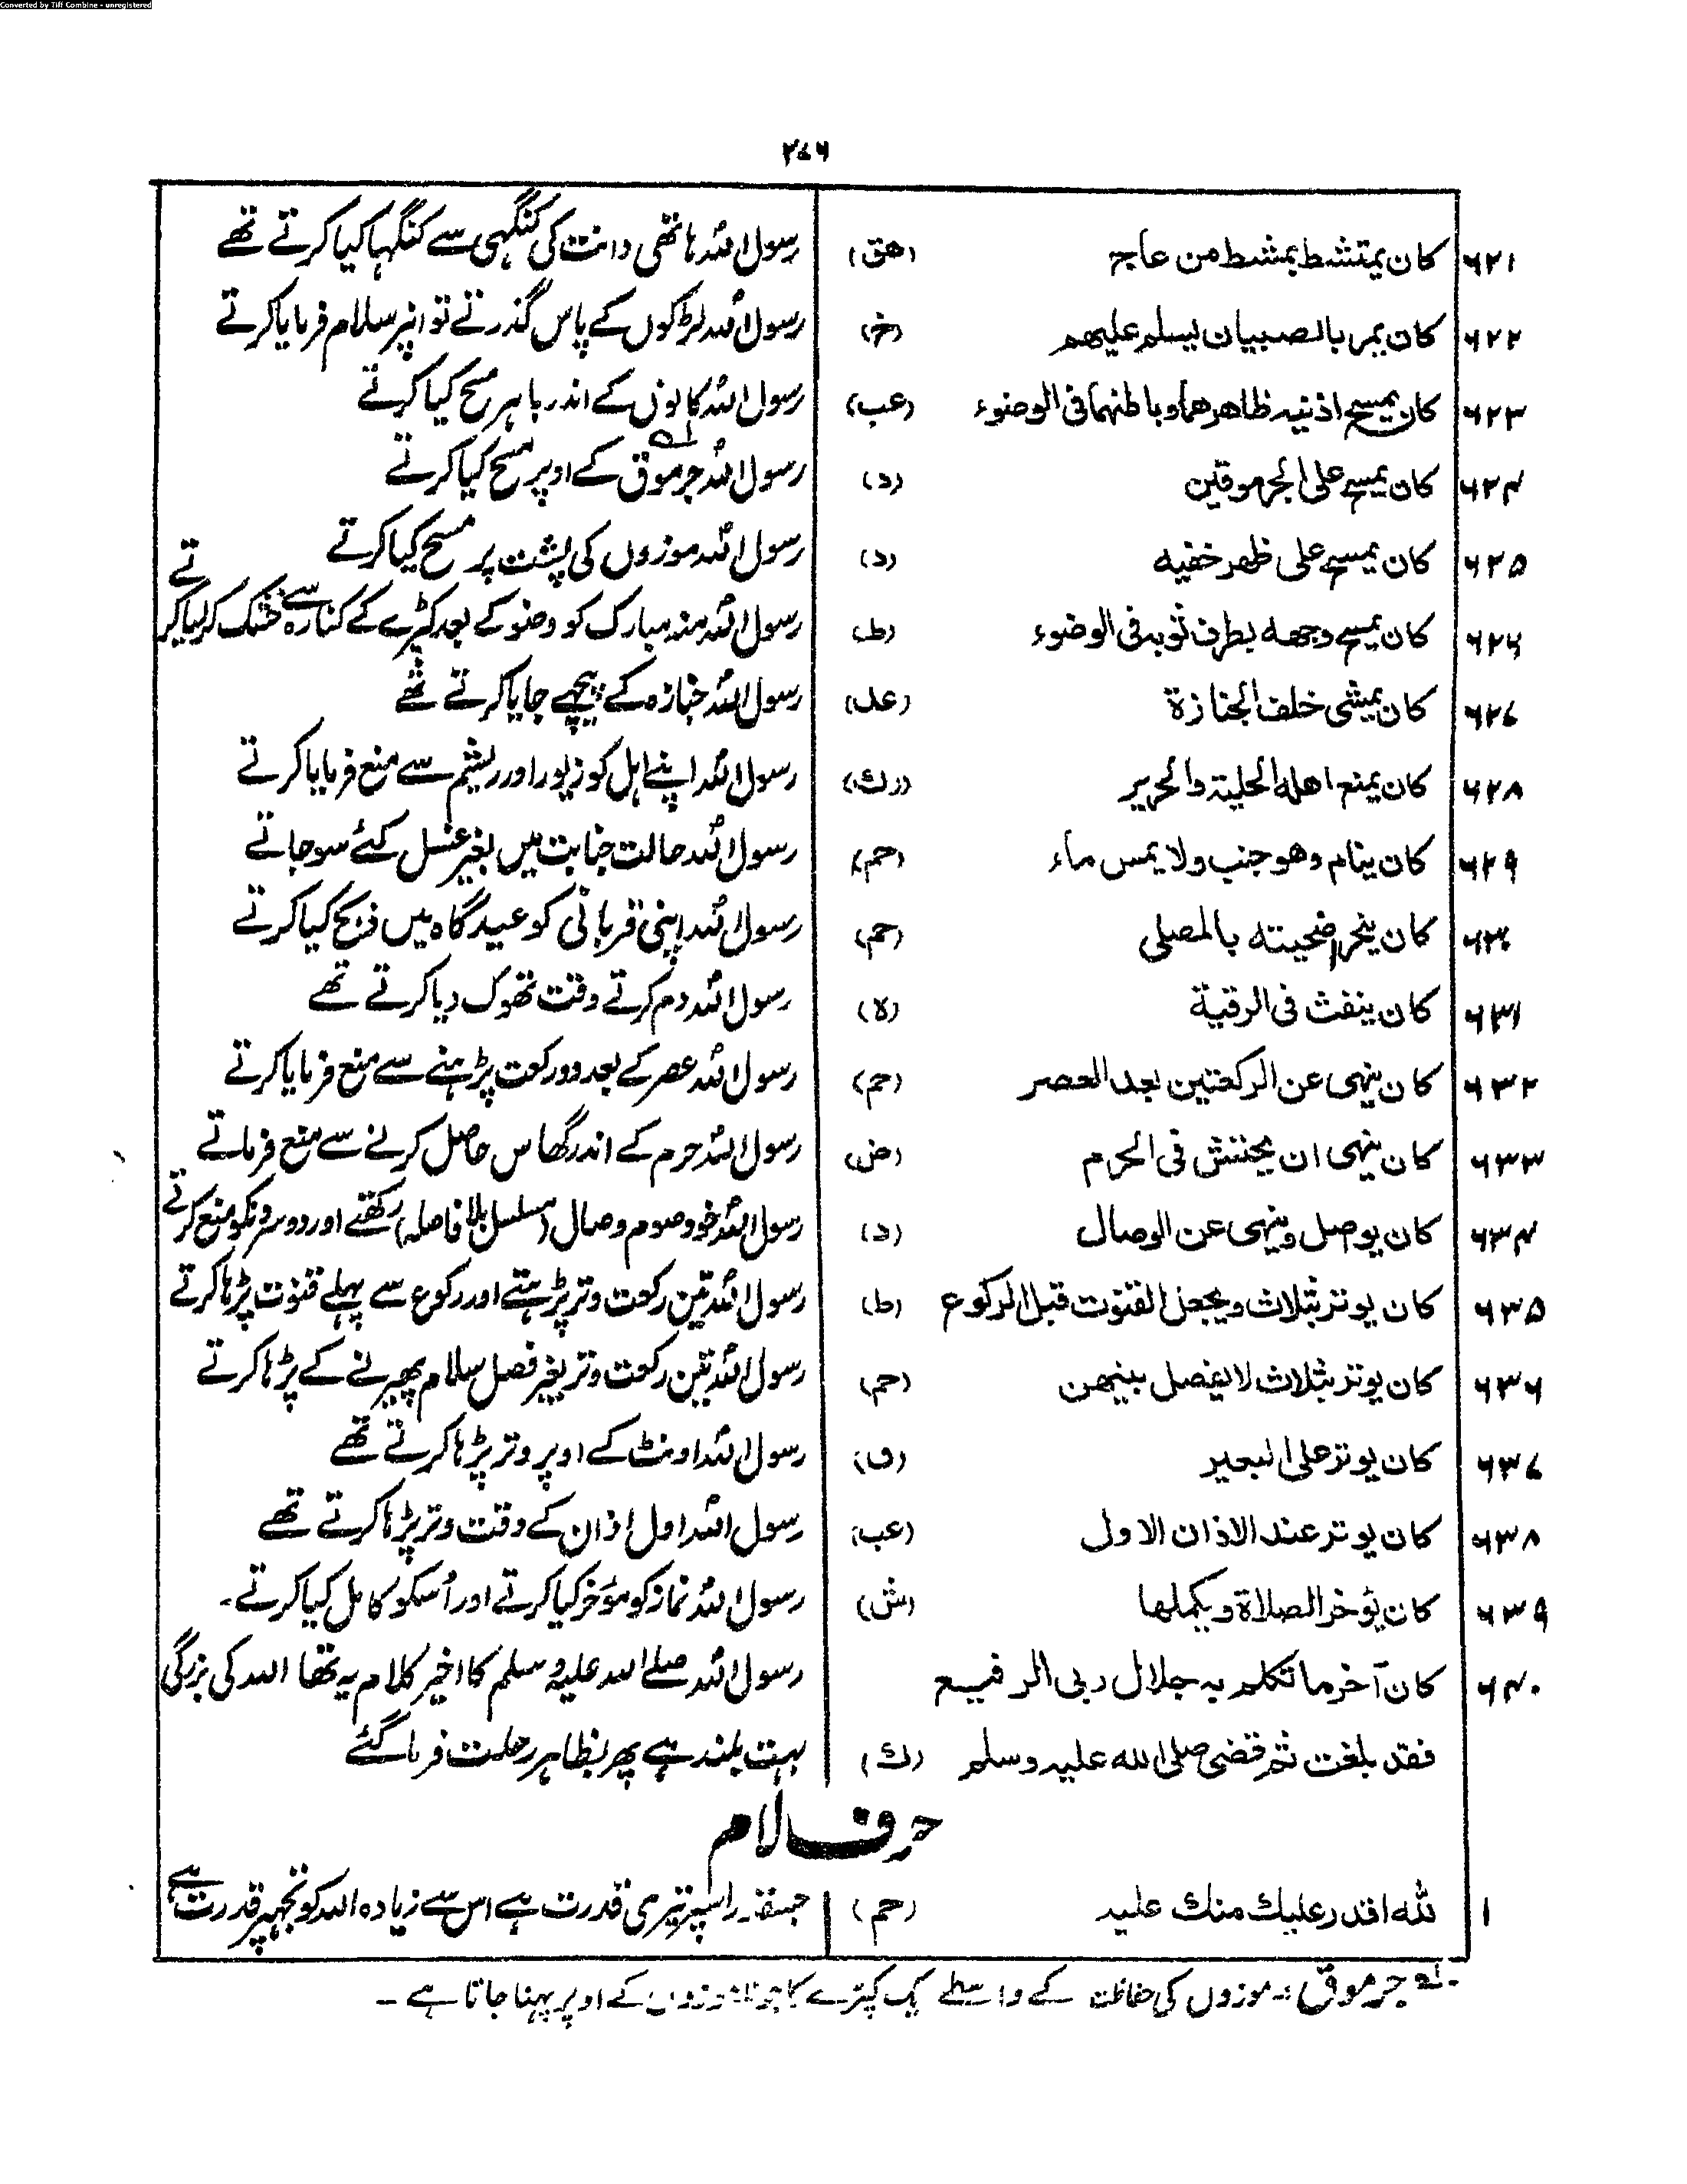 Converted by Tiff Combine - unregistered
۲۷۶
۶۲۱ كان يمتشط بمشط من عاج (هق) رسول اللہ ہاتھی دانت کی کنگہی سے کنگہا کیا کرتے تھے
۶۲۲ كان يمر بالصبيان يسلم عليهم (خ) رسول اللہ لڑکوں کے پاس گذرتے تو انپر سلام فرمایا کرتے
۶۲۳ كان يمسح اذنيه ظاهرهما وباطنهما فى الوضوء (عب) رسول اللہ کانوں کے اندر باہر مسح کیا کرتے
۶۲۴ كان يمسح على الجرموقين (د) رسول اللہ جرموق لہ کے اوپر مسح کیا کرتے
۶۲۵ كان يمسح على ظهر خفيه (د) رسول اللہ موزوں کی پشت پر مسح کیا کرتے
۶۲۶ كان يمسح وجهه بطرف ثوبه فى الوضوء (طب) رسول اللہ منہ مبارک کو وضو کے بعد کپڑے کے کنارہ سے خشک کر لیا کرتے
۶۲۷ كان يمشى خلف الجنازة (عد) رسول اللہ جنازہ کے پیچھے جایا کرتے تھے
۶۲۸ كان يمنع اهله الحلية والحرير (ن ك) رسول اللہ اپنے اہل کو زیور اور ریشم سے منع فرمایا کرتے
۶۲۹ كان ينام وهو جنب ولا يمس ماء (حم) رسول اللہ حالت جنابت میں بغیر غسل کئے سو جاتے
۶۳۰ كان ينحر اضحيته بالمصلى (حم) رسول اللہ اپنی قربانی کو عیدگاہ میں ذبح کیا کرتے
۶۳۱ كان ينفث فى الرقية (ه) رسول اللہ دم کرتے وقت تھوک دیا کرتے تھے
۶۳۲ كان ينهى عن الركعتين بعد العصر (حم) رسول اللہ عصر کے بعد دو رکعت پڑہنے سے منع فرمایا کرتے
۶۳۳ كان ينهى ان يحتش فى الحرم (ض) رسول اللہ حرم کے اندر گھاس حاصل کرنے سے منع فرماتے
۶۳۴ كان يوصل وينهى عن الوصال (د) رسول اللہ خود صوم وصال (مسلسل بلا فاصلہ) رکھتے اور دوسرونکو منع کرتے
۶۳۵ كان يوتر بثلاث ويجعل القنوت قبل الركوع (ط) رسول اللہ تین رکعت وتر پڑہتے اور رکوع سے پہلے قنوت پڑہا کرتے
۶۳۶ كان يوتر بثلاث لا يفصل بينهن (حم) رسول اللہ تین رکعت وتر بغیر فصل سلام پھیرنے کے پڑہا کرتے
۶۳۷ كان يوتر على البعير (ق) رسول اللہ اونٹ کے اوپر وتر پڑہا کرتے تھے
۶۳۸ كان يوتر عند الاذان الاول (عب) رسول اللہ اول اذان کے وقت وتر پڑہا کرتے تھے
۶۳۹ كان يؤخر الصلاة ويكملها (ش) رسول اللہ نماز کو مؤخر کیا کرتے اور اُسکو کامل کیا کرتے۔
۶۴۰ كان آخر ما تكلم به جلال ربى الرفيع رسول اللہ صلے اللہ علیہ وسلم کا اخیر کلام یہ تھا اللہ کی بزرگی
فقد بلغت ثم قضى صلى الله عليه وسلم (ك) بہت بلند ہے پھر بظاہر رحلت فرما گئے
حرف لام
۱ لله اقدر عليك منك عليه (حم) جسقدر اسپر تیری قدرت ہے اس سے زیادہ اللہ کو تجہپر قدرت ہے
لہ جرموق :۔ موزوں کی حفاظت کے واسطے کپڑے کا موزوں کے اوپر پہنا جاتا ہے ۔